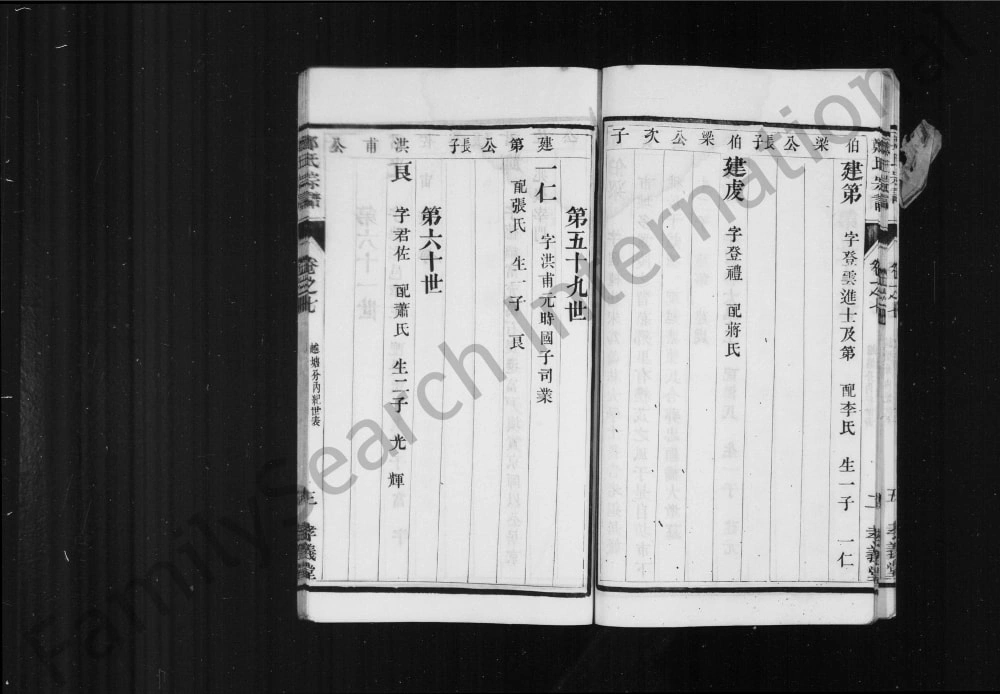 伯梁公長子
建第 字登雲進士及第 配李氏 生一子 一仁
伯梁公次子
建虔 字登禮 配蔣氏
第五十九世
建第公長子
一仁 字洪甫元時國子司業
配張氏 生一子 良
第六十世
洪甫公
良 字君佐 配蕭氏 生二子 光 輝
卷之七
越塘分內紀世表
三
孝義堂
FamilySearch International